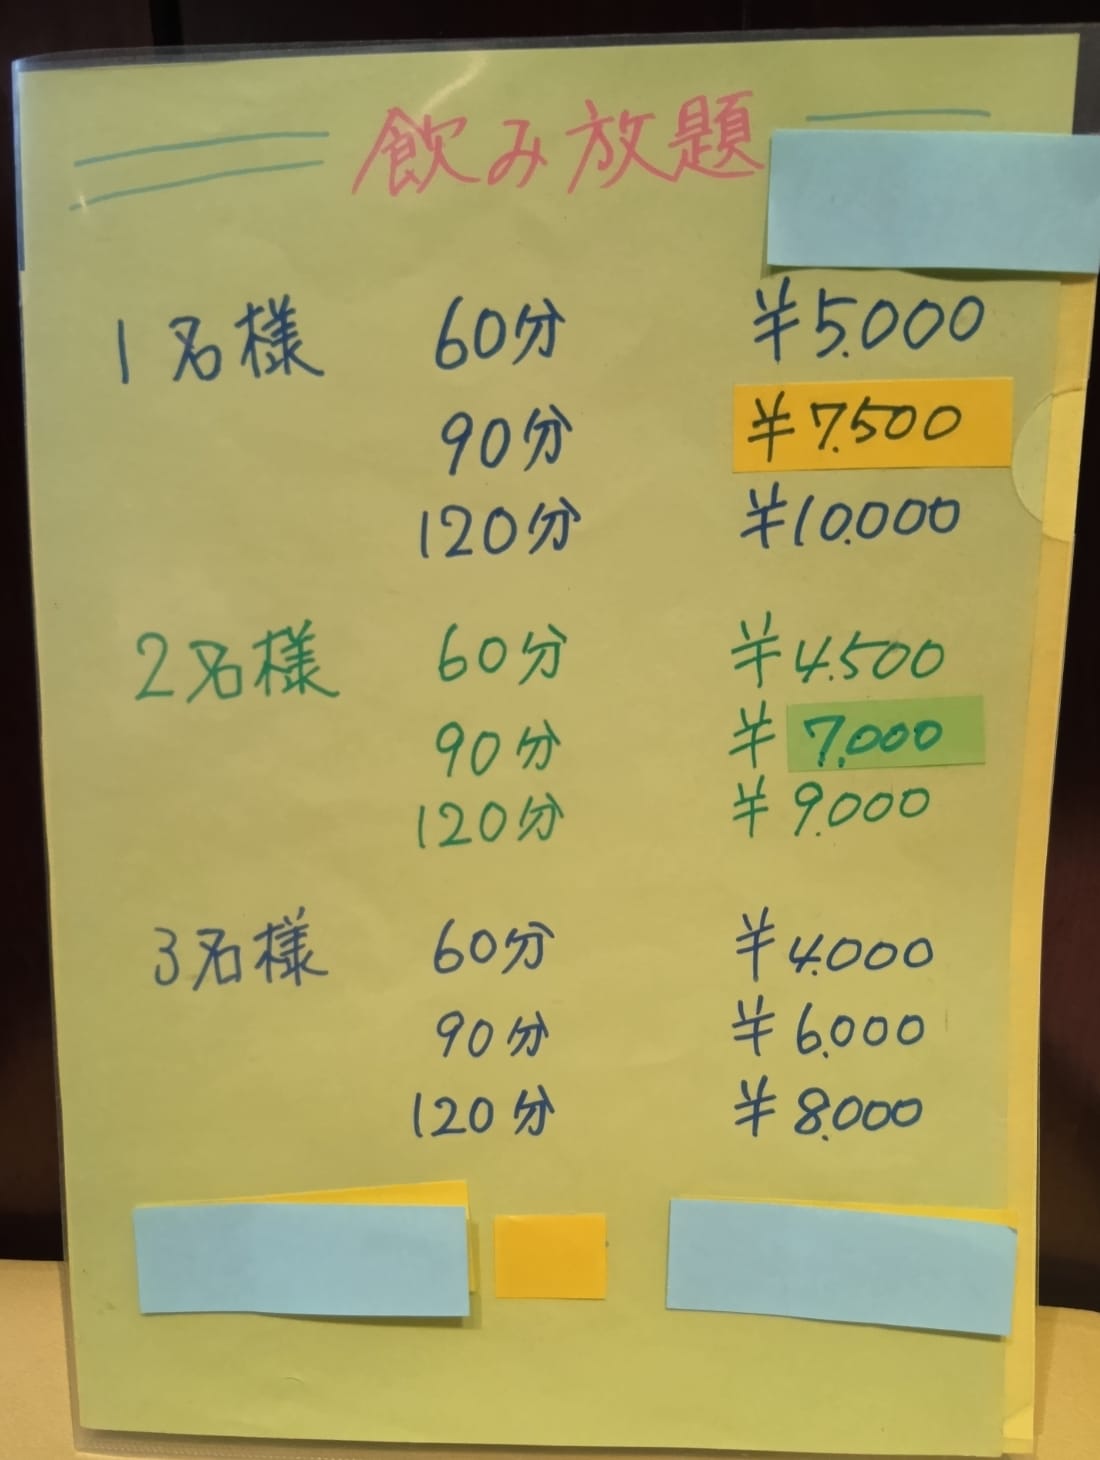 飲み放題
1名様 60分 ¥5.000
90分 ¥7.500
120分 ¥10.000
2名様 60分 ¥4.500
90分 ¥7.000
120分 ¥9.000
3名様 60分 ¥4.000
90分 ¥6.000
120分 ¥8.000